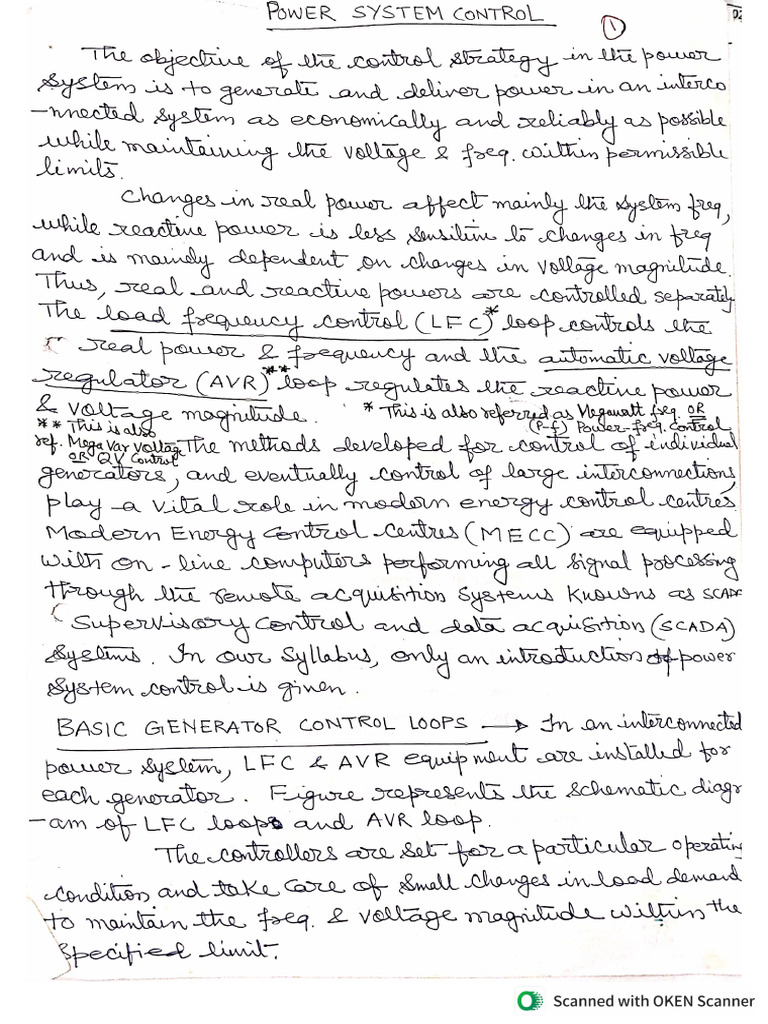 POWER SYSTEM CONTROL
1
The objective of the control strategy in the power
system is to generate and deliver power in an interco
-nnected system as economically and reliably as possible
while maintaining the voltage & freq. within permissible
limits.
Changes in real power affect mainly the system freq,
while reactive power is less sensitive to changes in freq
and is mainely dependent on changes in voltage magnitude.
Thus, real and reactive powers are controlled separately
The load frequency control (LFC)* loop controls the
real power & frequency and the automatic voltage
regulator (AVR)** loop regulates the reactive power
& voltage magnitude. * This is also referred as Megawatt freq. OR
(P-f) Power-freq. Control
** This is also
ref. Mega Var Voltage
OR QV Control
The methods developed for control of individual
generators, and eventually control of large interconnections,
play a vital role in modern energy control centres
Modern Energy Control Centres (MECC) are equipped
with on-line computers performing all signal processing
through the remote acquisition systems knowns as SCADA
Supervisory Control and data acquisition (SCADA)
systems. In our syllabus, only an introduction of power
system control is given.
BASIC GENERATOR CONTROL LOOPS → In an interconnected
power system, LFC & AVR equipment are installed for
each generator. Figure represents the schematic diagr
-am of LFC loop and AVR loop.
The controllers are set for a particular operating
condition and take care of small changes in load demand
to maintain the freq. & voltage magnitude within the
specified limit.
Scanned with OKEN Scanner